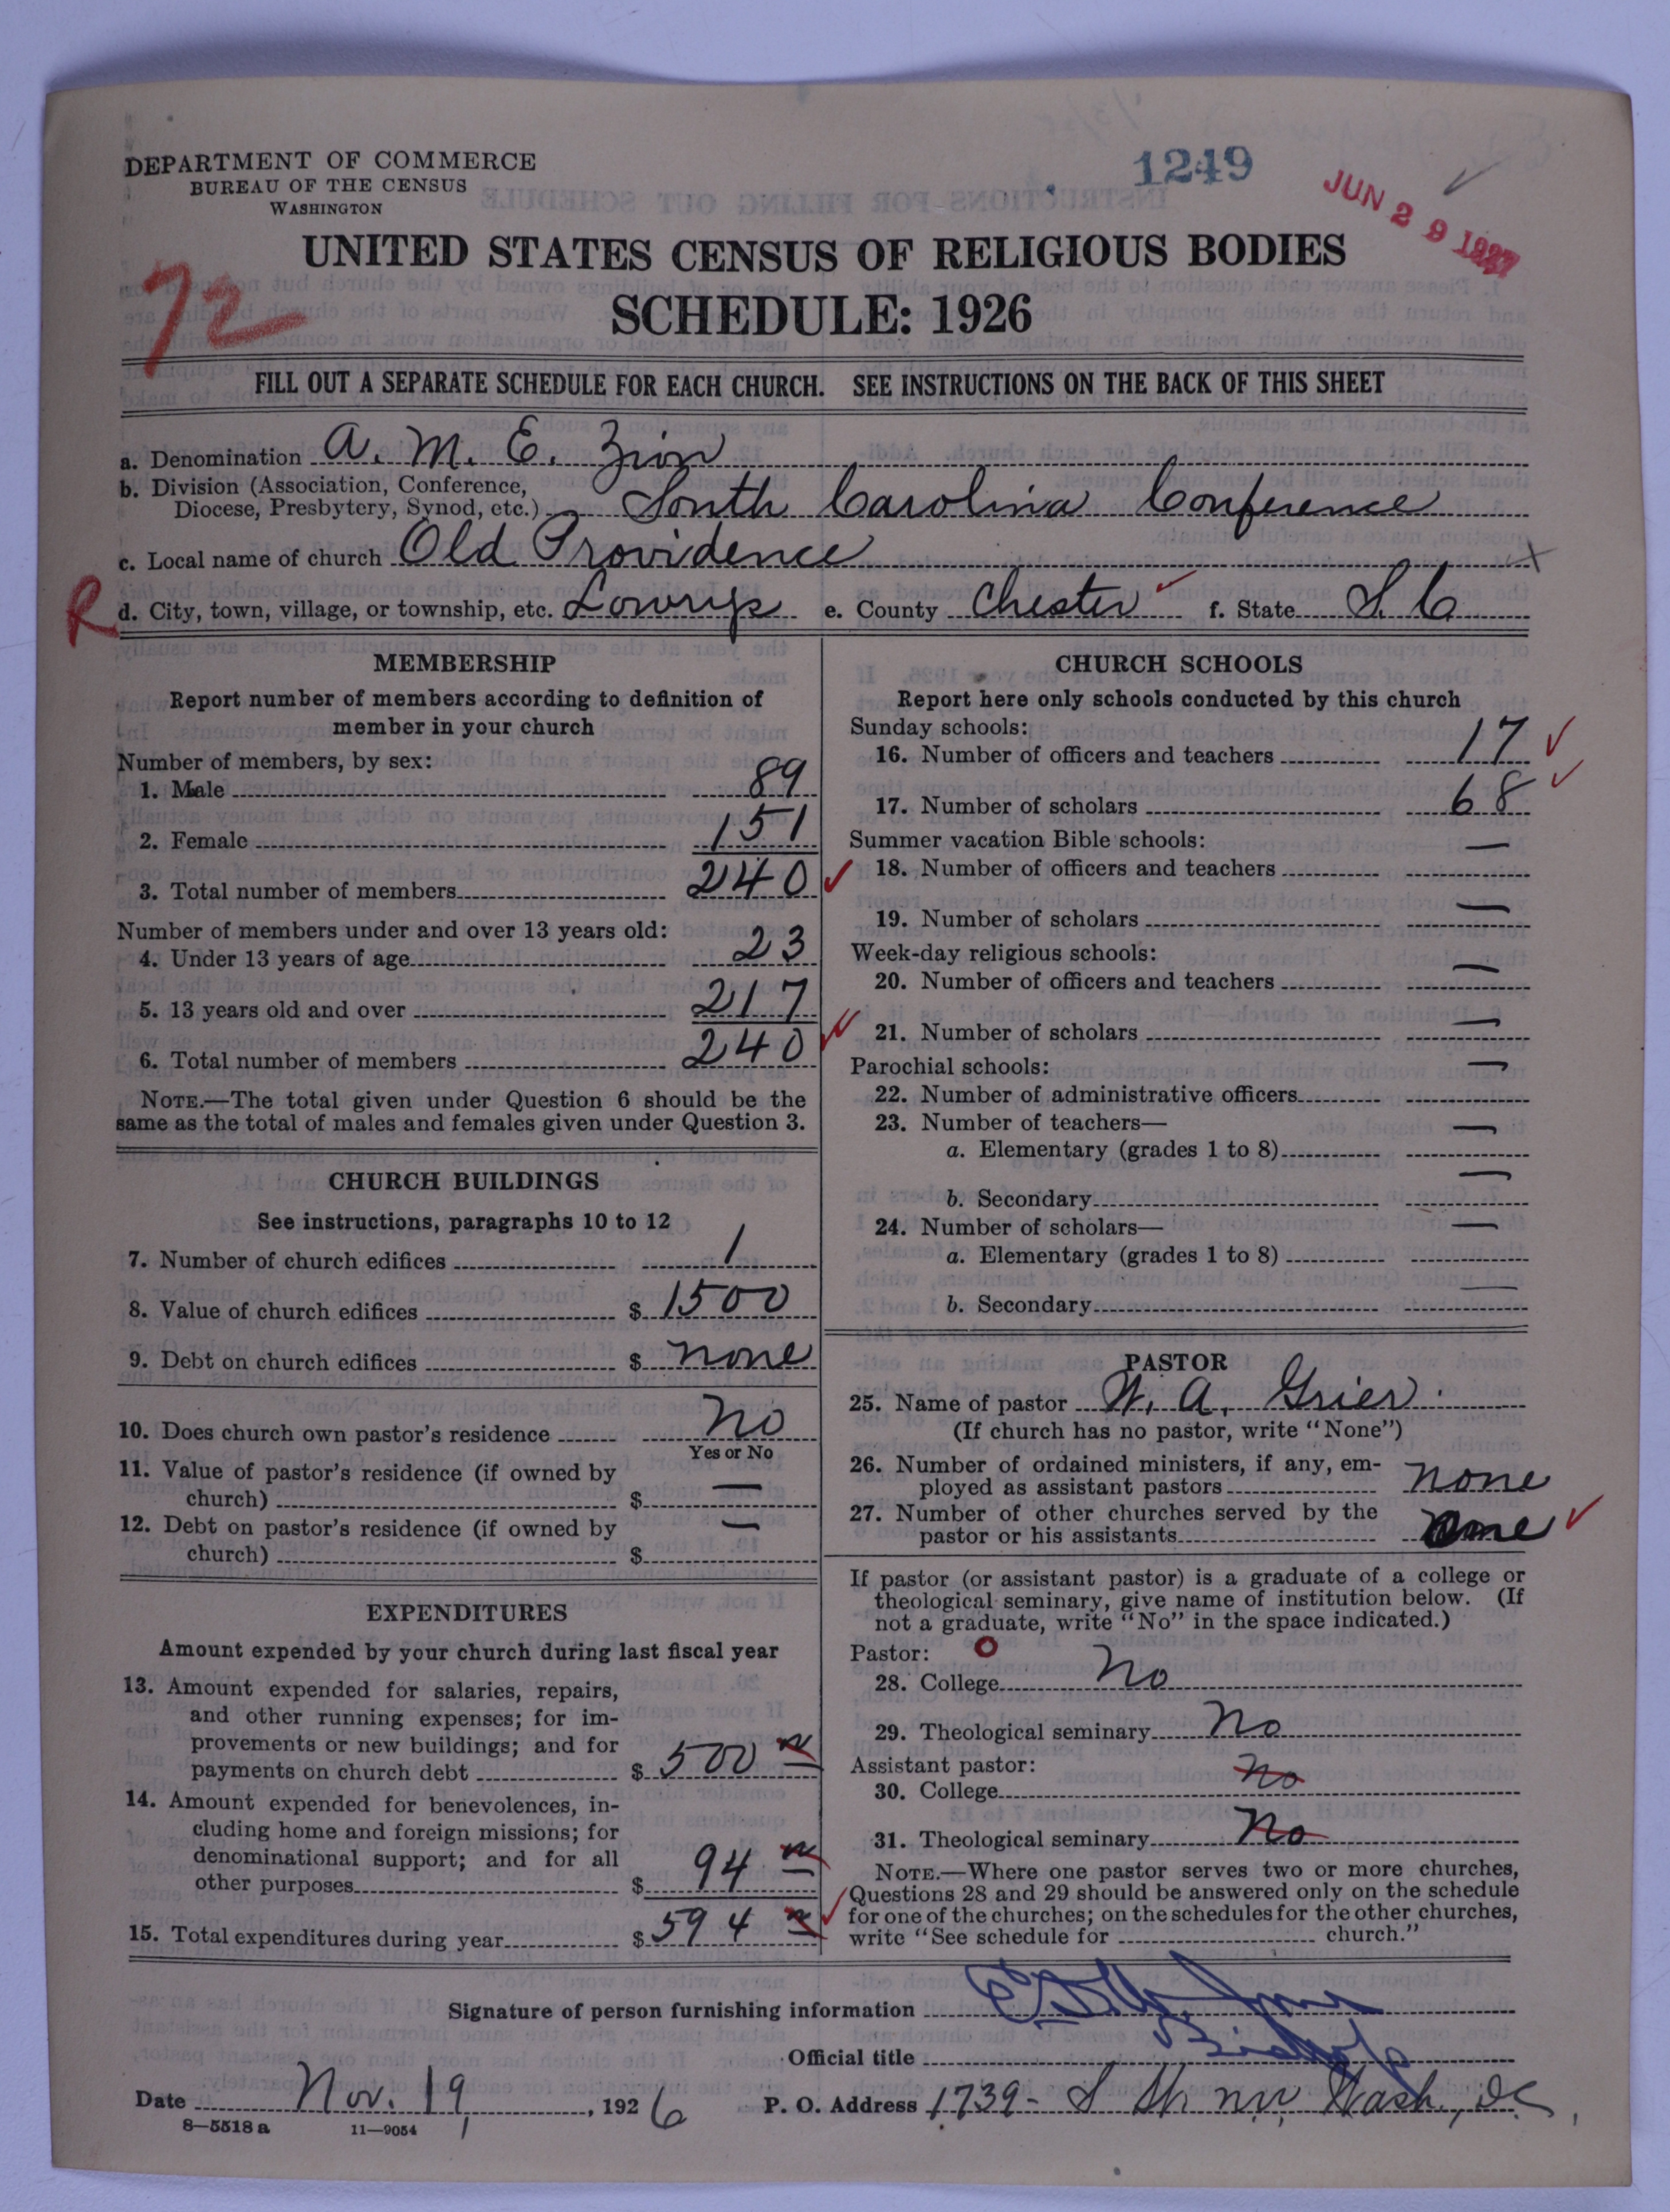 DEPARTMENT OF COMMERCE
BUREAU OF THE CENSUS
WASHINGTON
1249
JUN 29 1927
UNITED STATES CENSUS OF RELIGIOUS BODIES
72
SCHEDULE: 1926
FILL OUT A SEPARATE SCHEDULE FOR EACH CHURCH. SEE INSTRUCTIONS ON THE BACK OF THIS SHEET
a. Denomination A. M. E. Zion
b. Division (Association, Conference,
Diocese, Presbytery, Synod, etc.) South Carolina Conference
c. Local name of church Old Providence
R d. City, town, village, or township, etc. Lowrys e. County Chester f. State S. C
MEMBERSHIP
Report number of members according to definition of
member in your church
Number of members, by sex:
1. Male 89
2. Female 151
3. Total number of members 240
Number of members under and over 13 years old:
4. Under 13 years of age 23
5. 13 years old and over 217
6. Total number of members 240
NOTE.—The total given under Question 6 should be the
same as the total of males and females given under Question 3.
CHURCH BUILDINGS
See instructions, paragraphs 10 to 12
7. Number of church edifices 1
8. Value of church edifices $ 1500
9. Debt on church edifices $ none
10. Does church own pastor's residence No
Yes or No
11. Value of pastor's residence (if owned by
church) $ —
12. Debt on pastor's residence (if owned by
church) $ —
EXPENDITURES
Amount expended by your church during last fiscal year
13. Amount expended for salaries, repairs,
and other running expenses; for im-
provements or new buildings; and for
payments on church debt $ 500
14. Amount expended for benevolences, in-
cluding home and foreign missions; for
denominational support; and for all
other purposes $ 94
15. Total expenditures during year $ 594
CHURCH SCHOOLS
Report here only schools conducted by this church
Sunday schools:
16. Number of officers and teachers 17
17. Number of scholars 68
Summer vacation Bible schools:
18. Number of officers and teachers —
19. Number of scholars —
Week-day religious schools:
20. Number of officers and teachers —
21. Number of scholars —
Parochial schools:
22. Number of administrative officers —
23. Number of teachers—
a. Elementary (grades 1 to 8) —
b. Secondary —
24. Number of scholars—
a. Elementary (grades 1 to 8) —
b. Secondary —
PASTOR
25. Name of pastor W. A. Grier
(If church has no pastor, write "None")
26. Number of ordained ministers, if any, em-
ployed as assistant pastors none
27. Number of other churches served by the
pastor or his assistants one
If pastor (or assistant pastor) is a graduate of a college or
theological seminary, give name of institution below. (If
not a graduate, write "No" in the space indicated.)
Pastor: O
28. College No
29. Theological seminary No
Assistant pastor:
30. College No
31. Theological seminary No
NOTE.—Where one pastor serves two or more churches,
Questions 28 and 29 should be answered only on the schedule
for one of the churches; on the schedules for the other churches,
write "See schedule for church."
Signature of person furnishing information
Official title Bishop
Date Nov. 19, 1926 P. O. Address 1739- S St. nw Wash., DC,
8—5518 a 11—9054